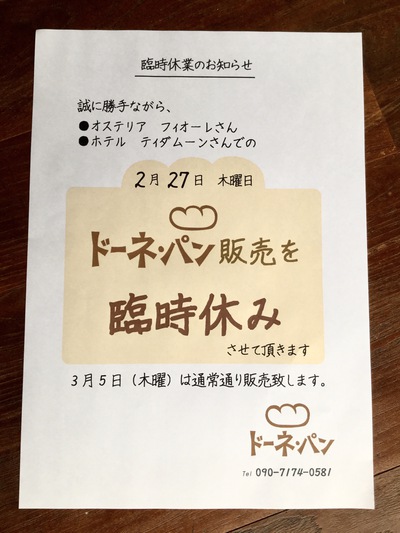 臨時休業のお知らせ
誠に勝手ながら、
●オステリア　フィオーレさん
●ホテル　ティダムーンさんでの
2月27日　木曜日
ドーネ・パン販売を
臨時休み
させて頂きます
3月5日（木曜）は通常通り販売致します。
ドーネ・パン
Tel 090-7174-0581